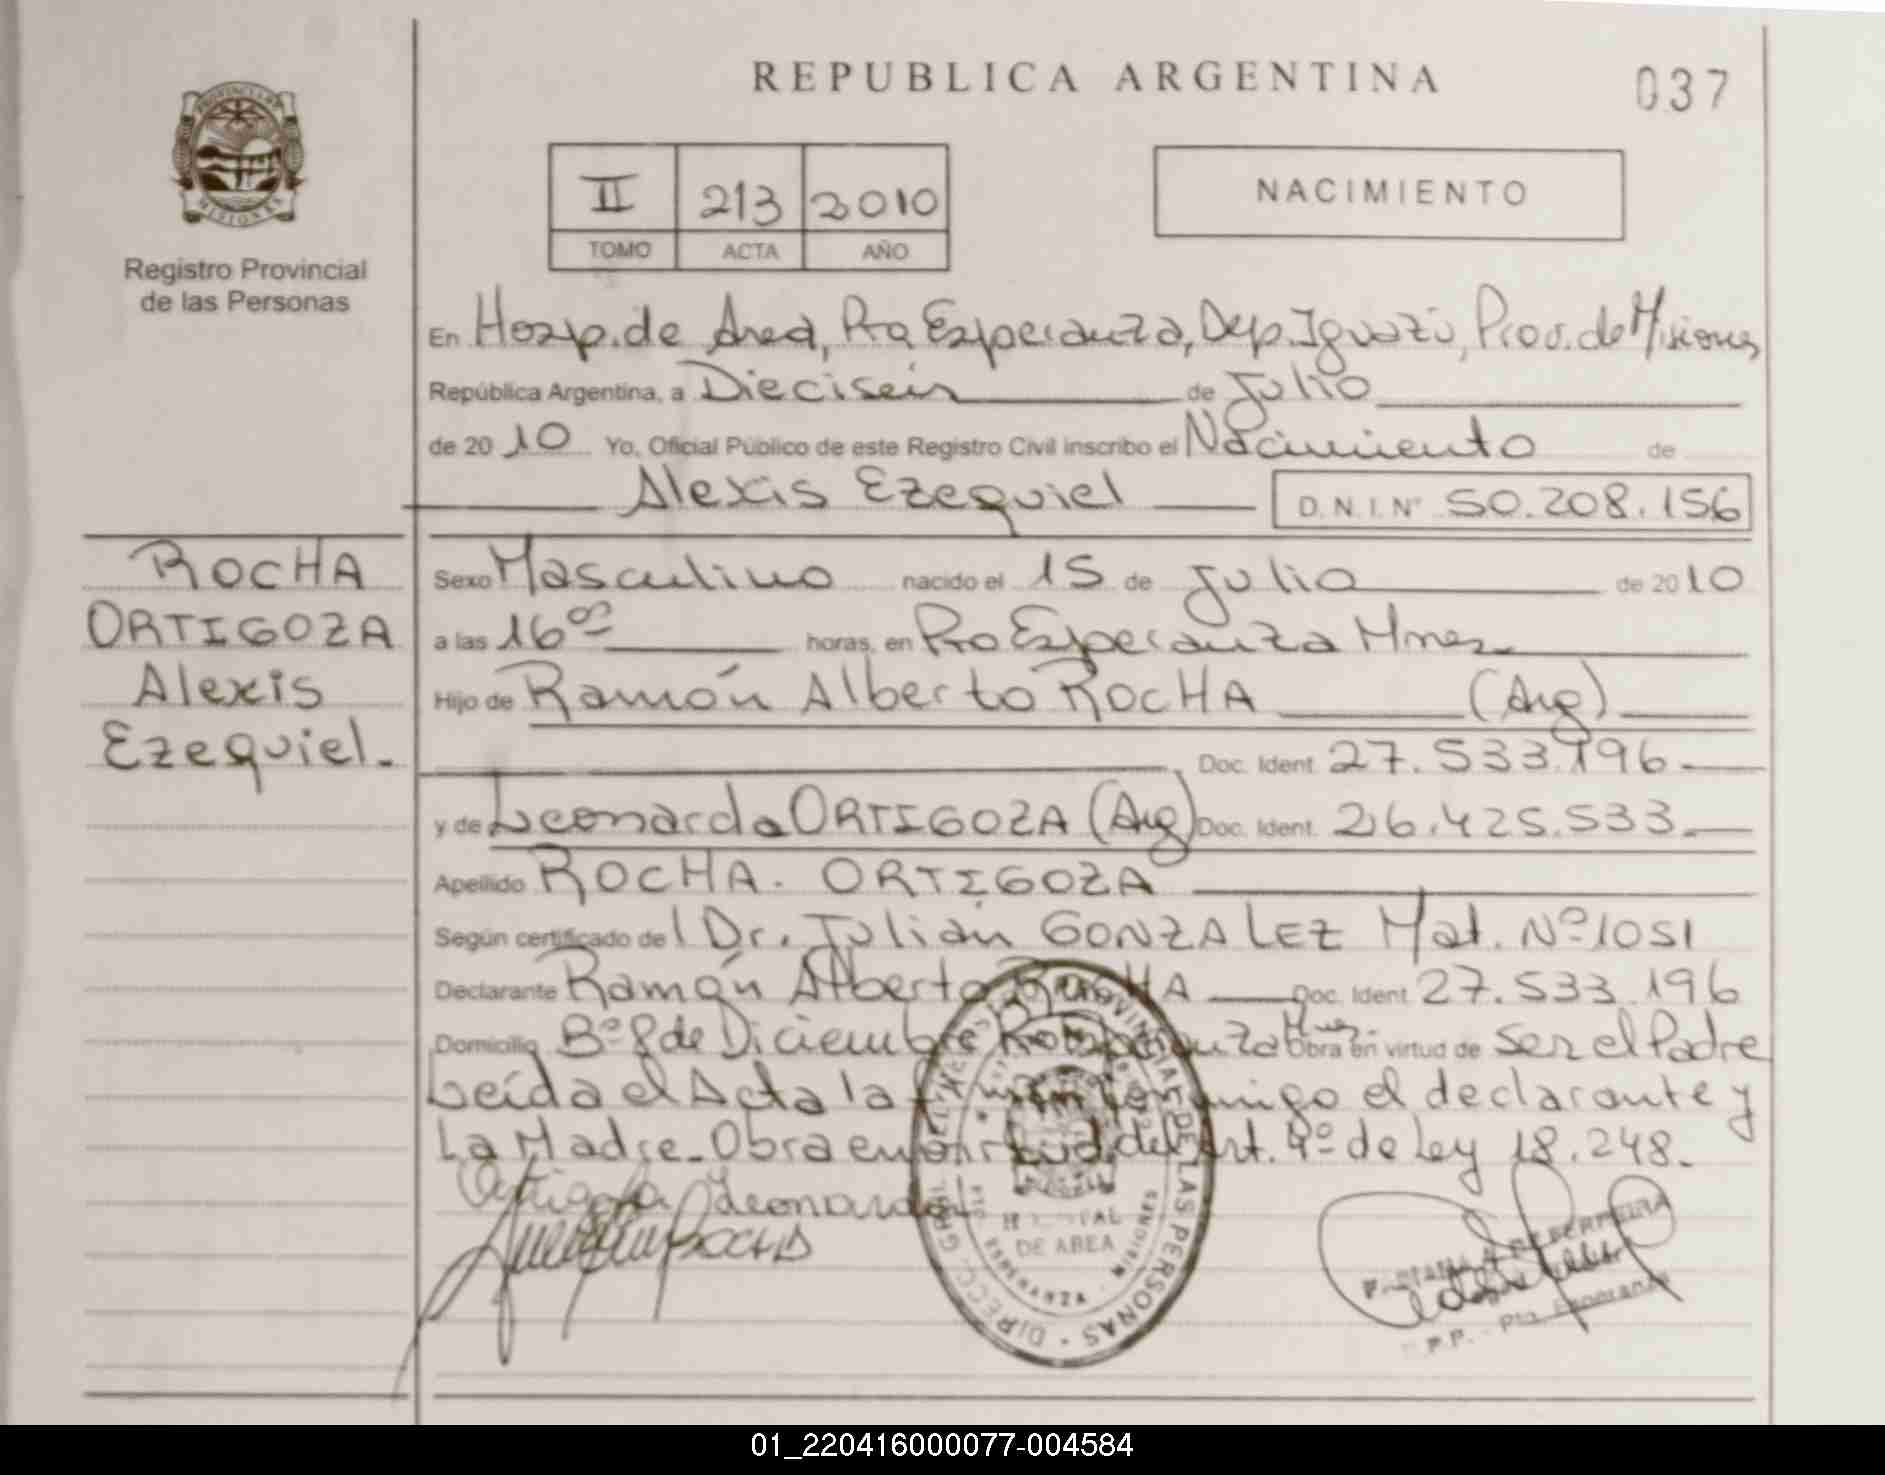 REPUBLICA ARGENTINA
037
PROVINCIA DE
MISIONES
Registro Provincial
de las Personas
II 213 2010
TOMO ACTA AÑO
NACIMIENTO
En Hosp. de Area, Pto Esperanza, Dep. Iguazú, Prov. de Misiones
República Argentina, a Dieciseis de Julio
de 2010 Yo, Oficial Público de este Registro Civil inscribo el Nacimiento de
Alexis Ezequiel D.N.I. Nº 50.208.156
ROCHA
ORTIGOZA
Alexis
Ezequiel.
Sexo Masculino nacido el 15 de Julio de 2010
a las 16 00 horas, en Pto Esperanza Mnes.
Hijo de Ramón Alberto ROCHA (Arg)
Doc. Ident. 27.533.196.
y de Leonarda ORTIGOZA (Arg) Doc. Ident. 26.425.533.
Apellido ROCHA. ORTIGOZA
Según certificado del Dr. Julián GONZALEZ Mat. Nº 1051
Declarante Ramón Alberto ROCHA Doc. Ident. 27.533.196
Domicilio Bº 8 de Diciembre Pto Esperanza Mnes. Obra en virtud de ser el Padre
Leída el Acta la firman conmigo el declarante y
La Madre. Obra en virtud del Art. 4º de Ley 18.248.
Ortigoza Leonarda
ROCHA
DIRECC. GRAL. DEL REGISTRO PROVINCIAL DE LAS PERSONAS
HOSPITAL
DE AREA
PTO ESPERANZA - MISIONES
FERREIRA
R.P.P. - Pto. Esperanza
01_220416000077-004584